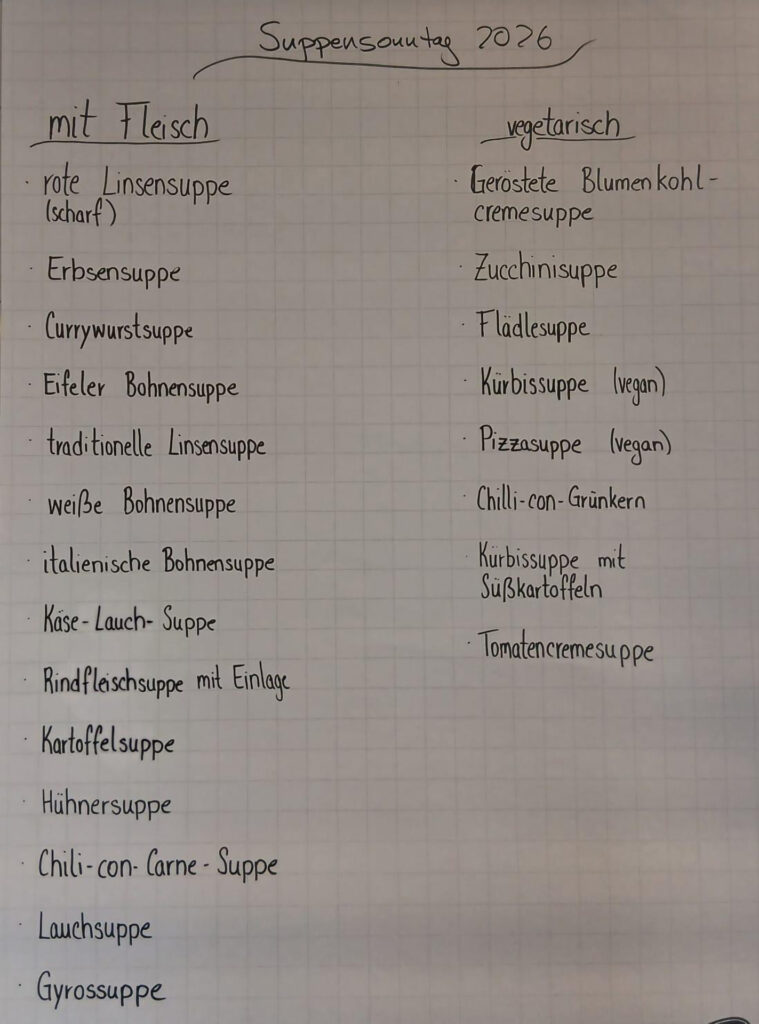 Suppensonntag 2026
mit Fleisch
· rote Linsensuppe
(scharf)
· Erbsensuppe
· Currywurstsuppe
· Eifeler Bohnensuppe
· traditionelle Linsensuppe
· weiße Bohnensuppe
· italienische Bohnensuppe
· Käse-Lauch-Suppe
· Rindfleischsuppe mit Einlage
· Kartoffelsuppe
· Hühnersuppe
· Chili-con-Carne-Suppe
· Lauchsuppe
· Gyrossuppe
vegetarisch
· Geröstete Blumenkohl-
cremesuppe
· Zucchinisuppe
· Flädlesuppe
· Kürbissuppe (vegan)
· Pizzasuppe (vegan)
· Chilli-con-Grünkern
· Kürbissuppe mit
Süßkartoffeln
· Tomatencremesuppe